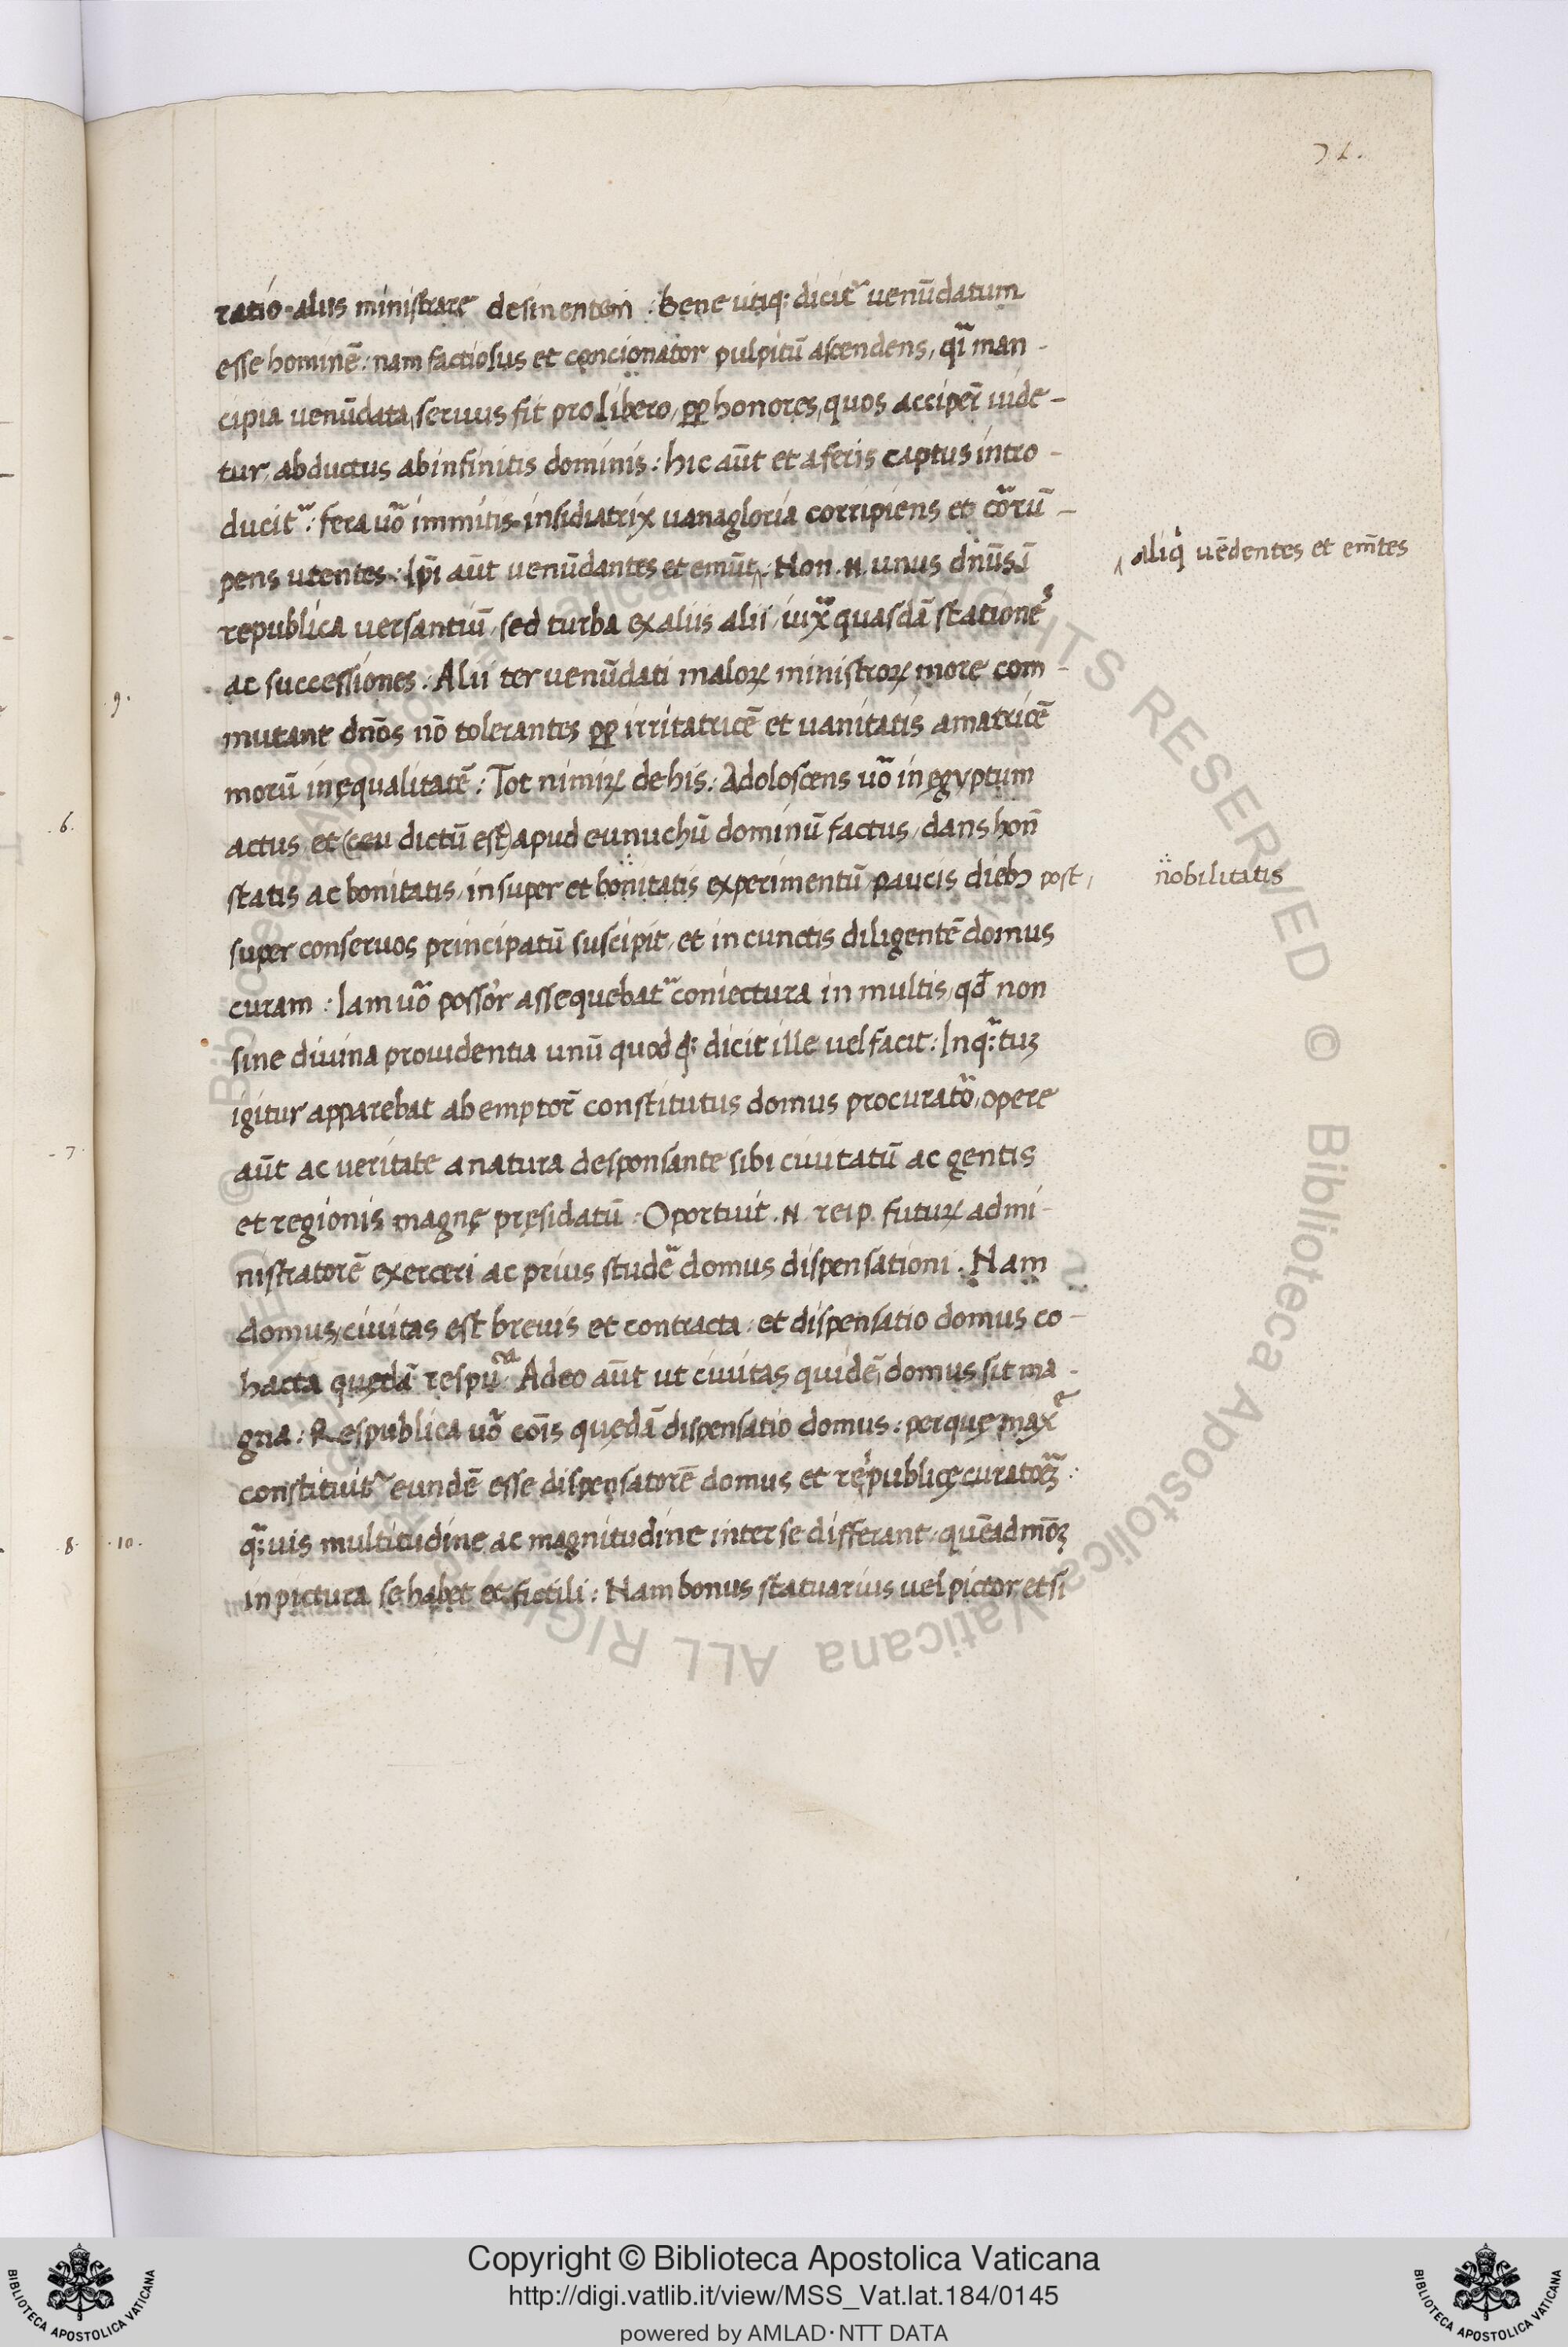 71.
ratio aliis ministrare desinentem: bene utiq; dicit᷑ uenūdatum
esse hominē: nam factiosus et concionator pulpitū ascendens, qi man-
cipia uenūdata, seruus fit pro libero, pp honores, quos acciper̄ uide-
tur, abductus ab infinitis dominis: hic aūt et a feris captus intro-
ducit᷑: fera uo immitis insidiatrix uanagloria corripiens et corrū-
pens utentes. Ip̄i aūt uenūdantes et emūt: Non .N. unus dn̄us ī
aliq uēdentes et em̄tes
republica uersantiū, sed turba ex aliis alii iux quasdā stationes
9.
ac successiones: Alii ter uenūdati maloꝝ ministroꝝ more com-
mutant dn̄os nō tolerantes pp irritatricē et uanitatis amatricē
morū inęqualitatē: Tot nimiꝝ de his: Adoloscens uo in ęgyptum
6.
actus et (ceu dictū est) apud eunuchū dominū factus, dans hon̄
statis ac bonitatis, insuper et bonitatis experimentū, paucis dieb; post,
nobilitatis
super conseruos principatū suscipit, et in cunctis diligentē domus
curam: Iam uo possor assequebat᷑ coniectura in multis, qd non
sine diuina prouidentia unū quodq; dicit ille uel facit: Inq;tuꝫ
igitur apparebat ab emptor̄ constitutus domus procurato, opere
7
aūt ac ueritate a natura desponsante sibi ciuitatū ac gentis
et regionis magnę pręsidatū: Oportuit .N. reip. futuꝝ admi-
nistratorē exerceri ac prius studē domus dispensationi. Nam
domus, ciuitas est breuis et contracta: et dispensatio domus co-
hacta quędā respuca: Adeo aūt ut ciuitas quidē, domus sit ma-
gna: Respublica uo cōis quędā dispensatio domus: per quę maxe
constituit᷑ eundē esse dispensatorē domus et rei publicę curatoꝫ:
8. 10.
q;uis multitudine ac magnitudine inter se differant, quēadmōꝫ
in pictura se habet et fictili: Nam bonus statuarius uel pictor etsi
Copyright © Biblioteca Apostolica Vaticana
http://digi.vatlib.it/view/MSS_Vat.lat.184/0145
powered by AMLAD·NTT DATA
BIBLIOTECA APOSTOLICA VATICANA
BIBLIOTECA APOSTOLICA VATICANA
© Biblioteca Apostolica Vaticana ALL RIGHTS RESERVED